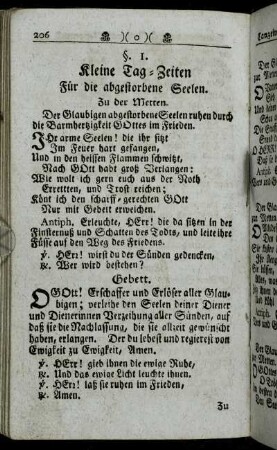 206
§. I.
Kleine Tag-Zeiten
Für die abgestorbene Seelen.
Zu der Metten.
Der Glaubigen abgestorbene Seelen ruhen durch
die Barmhertzigkeit GOttes im Frieden.
IHr arme Seelen! die ihr sitzt
Im Feuer hart gefangen,
Und in den heissen Flammen schwitzt,
Nach GOtt habt groß Verlangen:
Wie wolt ich gern euch aus der Noth
Erretten, und Trost reichen;
Könt ich den scharff-gerechten GOtt
Nur mit Gebett erweichen.
Antiph. Erleuchte, HErr! die da sitzen in der
Finsternuß und Schatten des Todts, und leite ihre
Füsse auf den Weg des Friedens.
℣. HErr! wirst du der Sünden gedencken,
℟. Wer wird bestehen?
Gebett.
O GOtt! Erschaffer und Erlöser aller Glau-
bigen; verleihe den Seelen deiner Diener
und Dienerinnen Verzeihung aller Sünden, auf
daß sie die Nachlassung, die sie allzeit gewünscht
haben, erlangen. Der du lebest und regierest von
Ewigkeit zu Ewigkeit, Amen.
℣. HErr! gieb ihnen die ewige Ruhe,
℟. Und das ewige Licht leuchte ihnen.
℣. HErr! laß sie ruhen im Frieden,
℟. Amen.
Zu